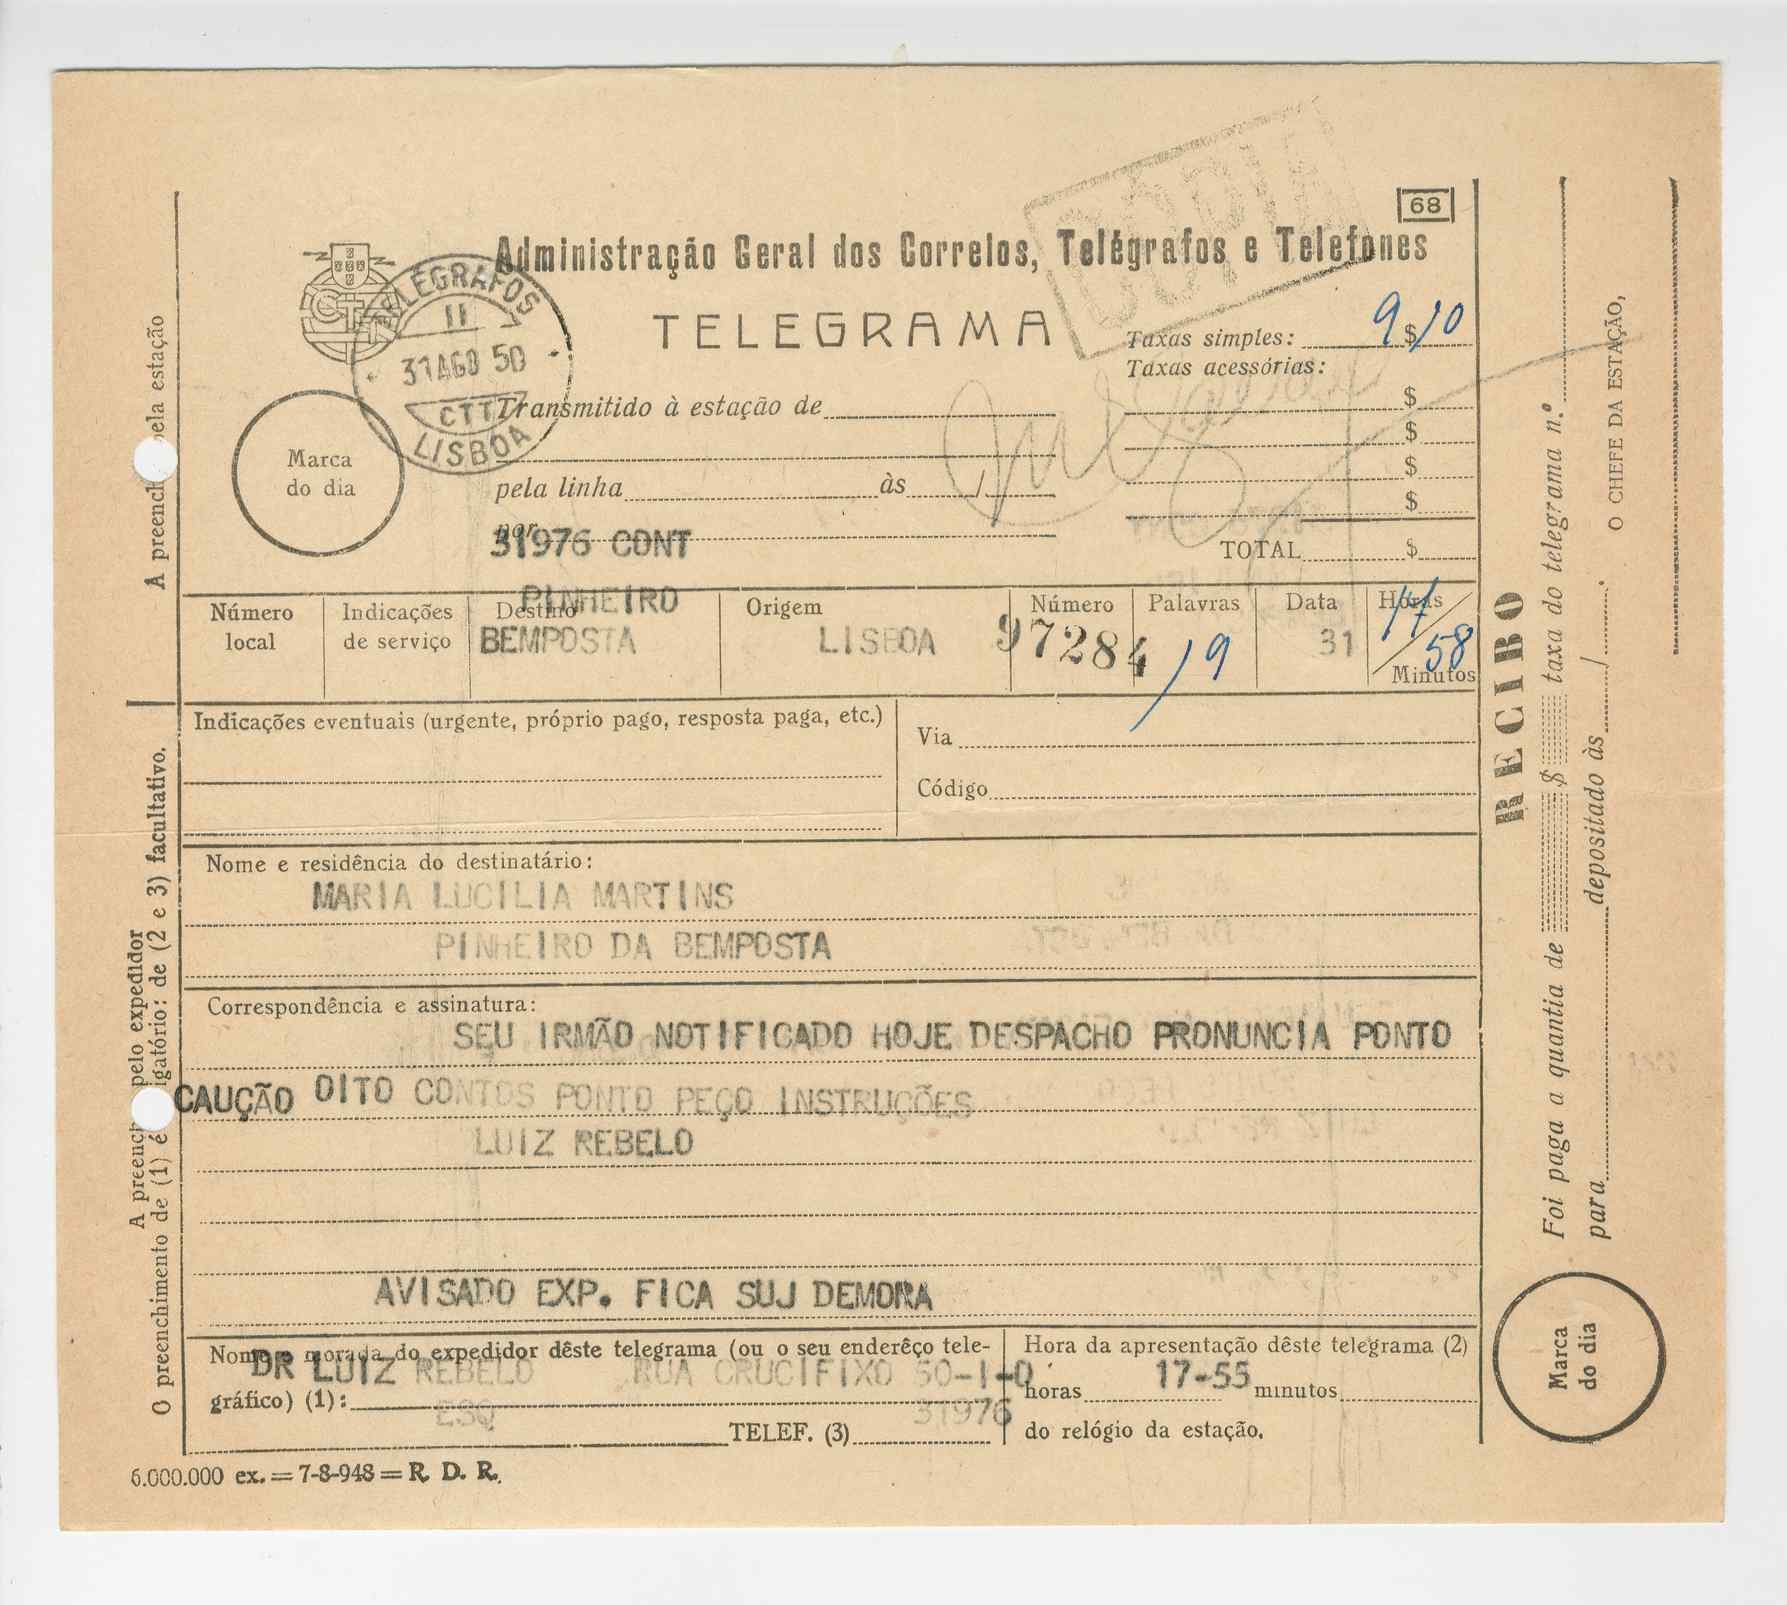 68
CÓPIA
Administração Geral dos Correios, Telégrafos e Telefones
TELEGRAMA
CTT
TELÉGRAFOS
11
31 AGO 50
CTT
LISBOA
Marca
do dia
Taxas simples: 9$10
Taxas acessórias:
Transmitido à estação de
$
$
pela linha às /
$
$
por
31976 CONT
TOTAL $
Número local
Indicações de serviço
Destino
PINHEIRO
BEMPOSTA
Origem
LISBOA
Número
97284
Palavras
19
Data
31
Horas
17
58
Minutos
Indicações eventuais (urgente, próprio pago, resposta paga, etc.)
Via
Código
Nome e residência do destinatário:
MARIA LUCILIA MARTINS
PINHEIRO DA BEMPOSTA
Correspondência e assinatura:
SEU IRMÃO NOTIFICADO HOJE DESPACHO PRONUNCIA PONTO
CAUÇÃO OITO CONTOS PONTO PEÇO INSTRUÇÕES
LUIZ REBELO
AVISADO EXP. FICA SUJ DEMORA
Nome e morada do expedidor dêste telegrama (ou o seu enderêço tele-
DR LUIZ REBELO RUA CRUCIFIXO 50-1-O
gráfico) (1):
ESQ 31976
TELEF. (3)
Hora da apresentação dêste telegrama (2)
horas 17-55 minutos
do relógio da estação.
6.000.000 ex. = 7-8-948 = R. D. R.
A preench pela estação
A preench pelo expedidor
O preenchimento de (1) é igatório: de (2 e 3) facultativo.
RECIBO
Foi paga a quantia de $ taxa do telegrama n.º
para depositado às /
O CHEFE DA ESTAÇÃO,
Marca
do dia